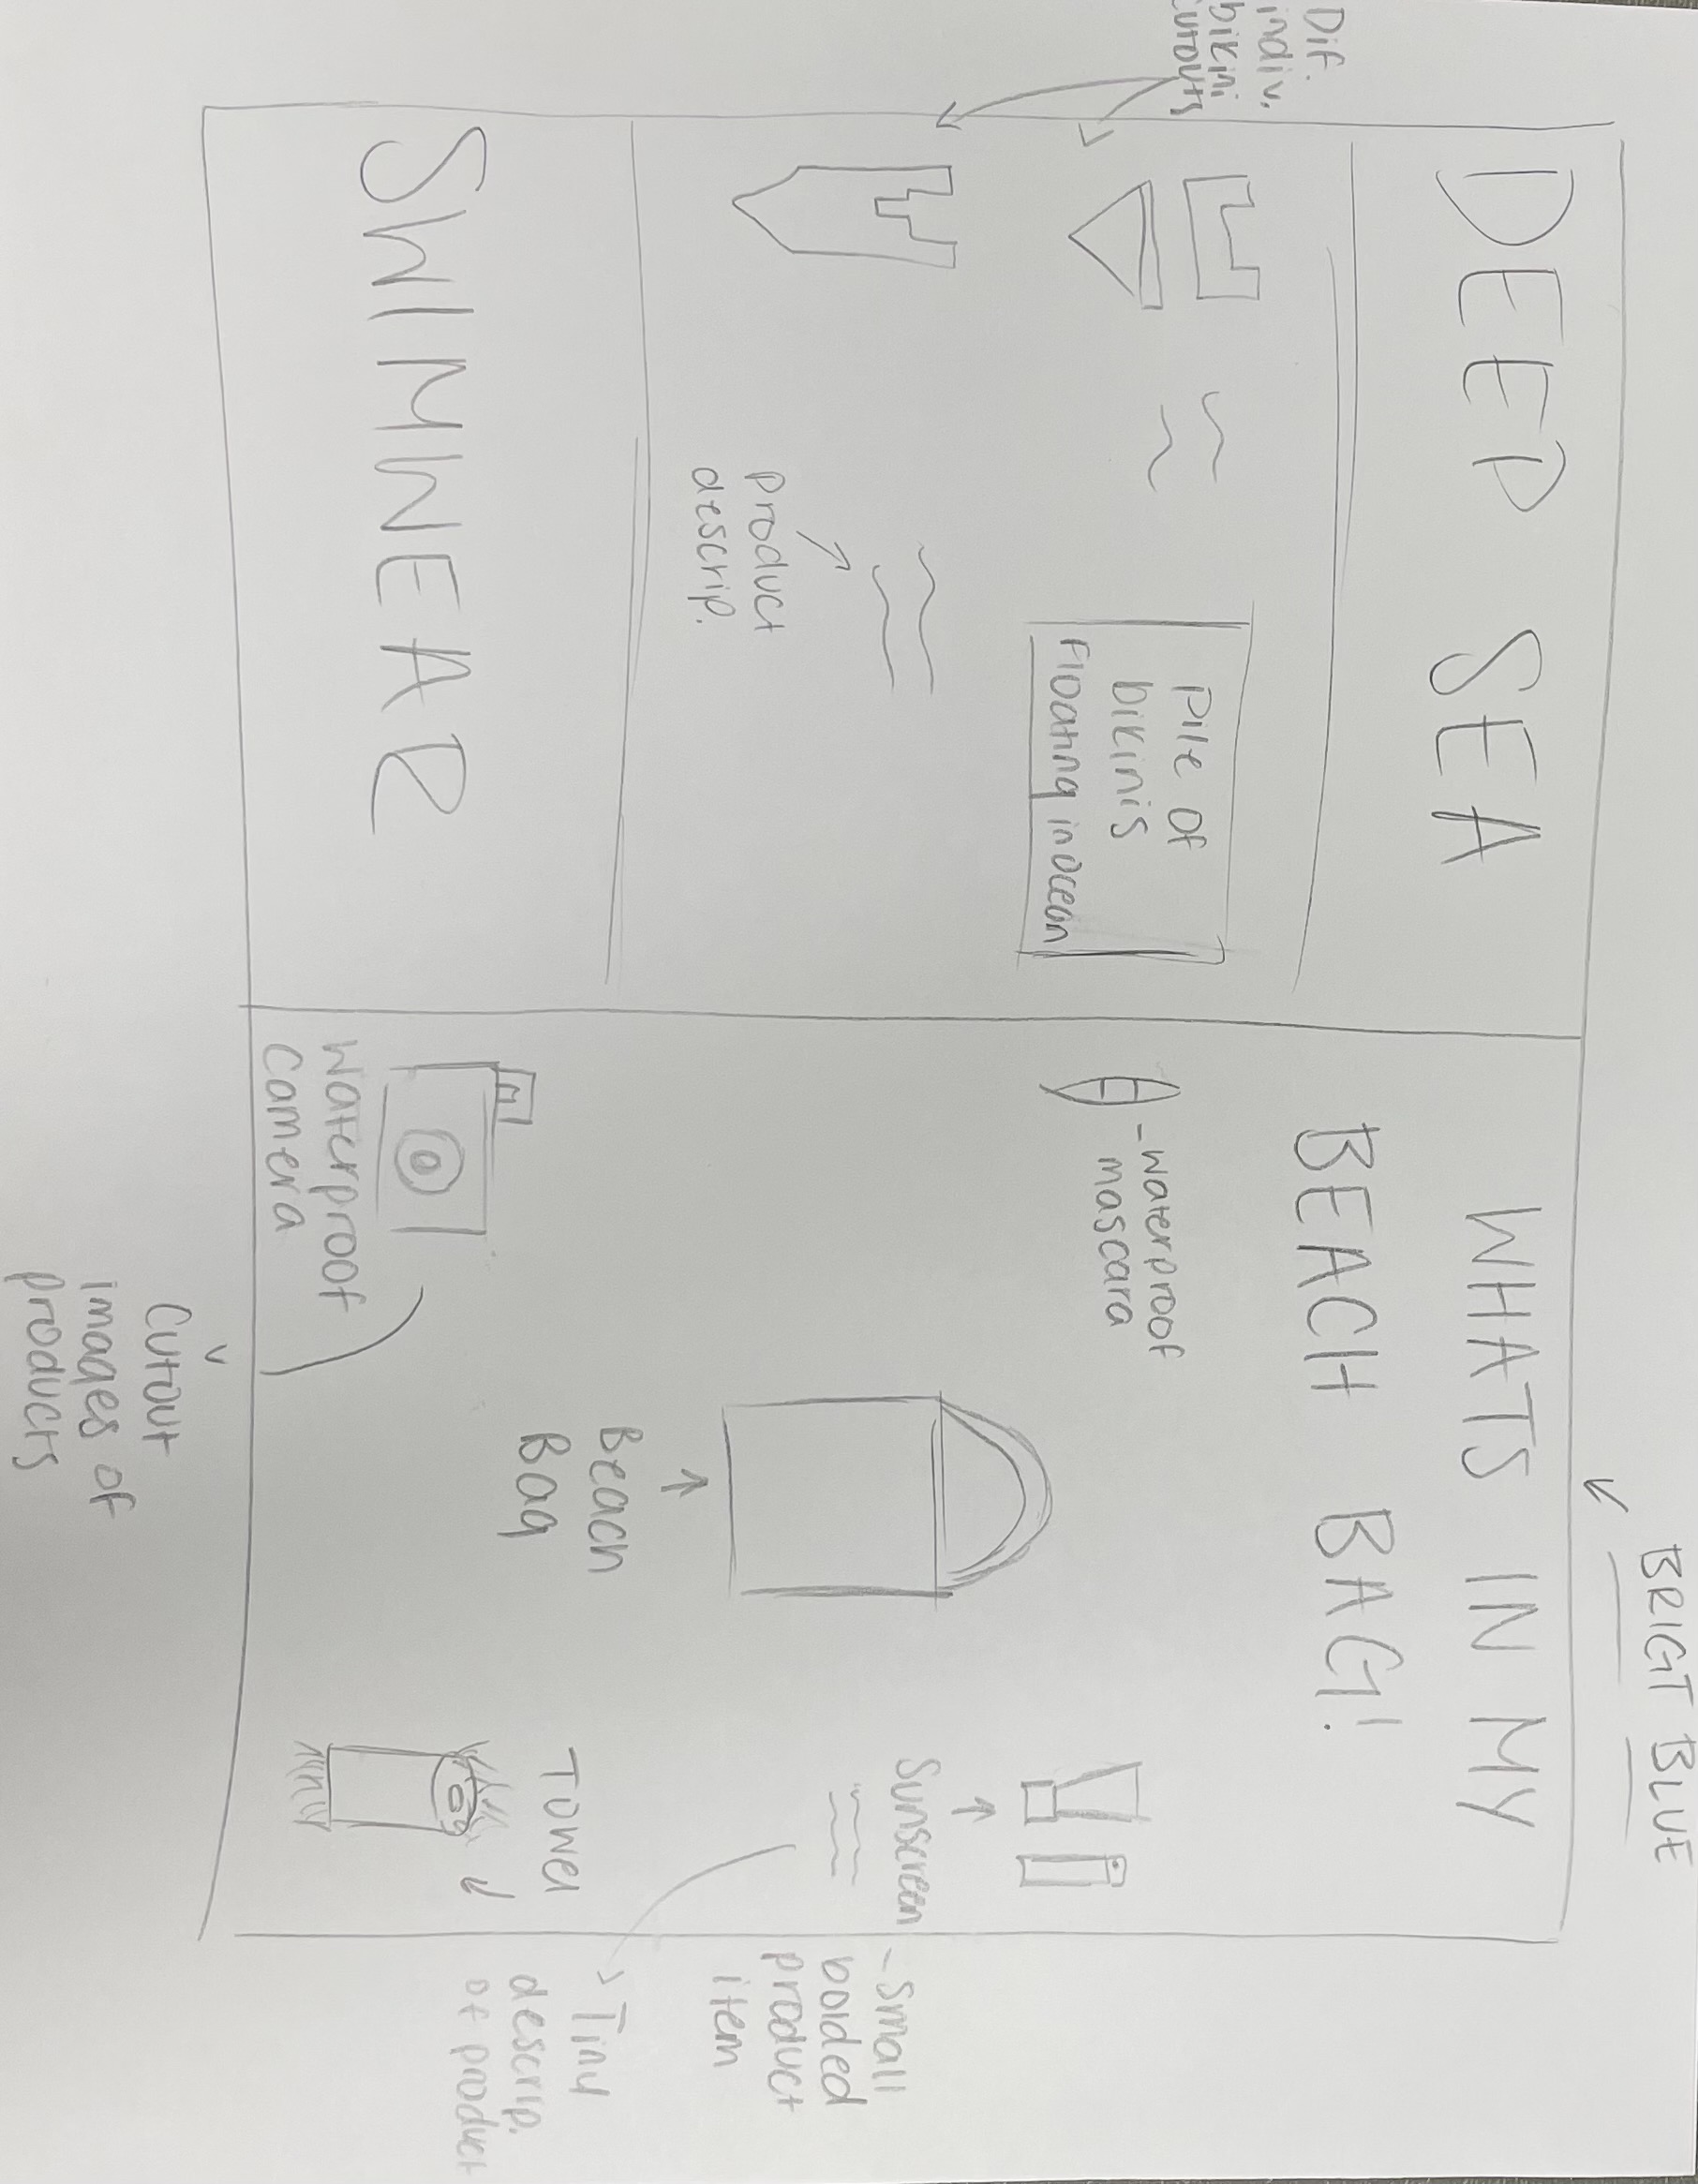 Dif.
indiv.
bikini
cutouts
DEEP SEA
Pile of
bikinis
Floating in ocean
product
descrip.
SWIMWEAR
BRIGT BLUE
WHATS IN MY
BEACH BAG!
-waterproof
mascara
Sunscreen
Beach
Bag
Towel
waterproof
camera
-Small
bolded
product
item
Tiny
descrip.
of product
Cutout
images of
products